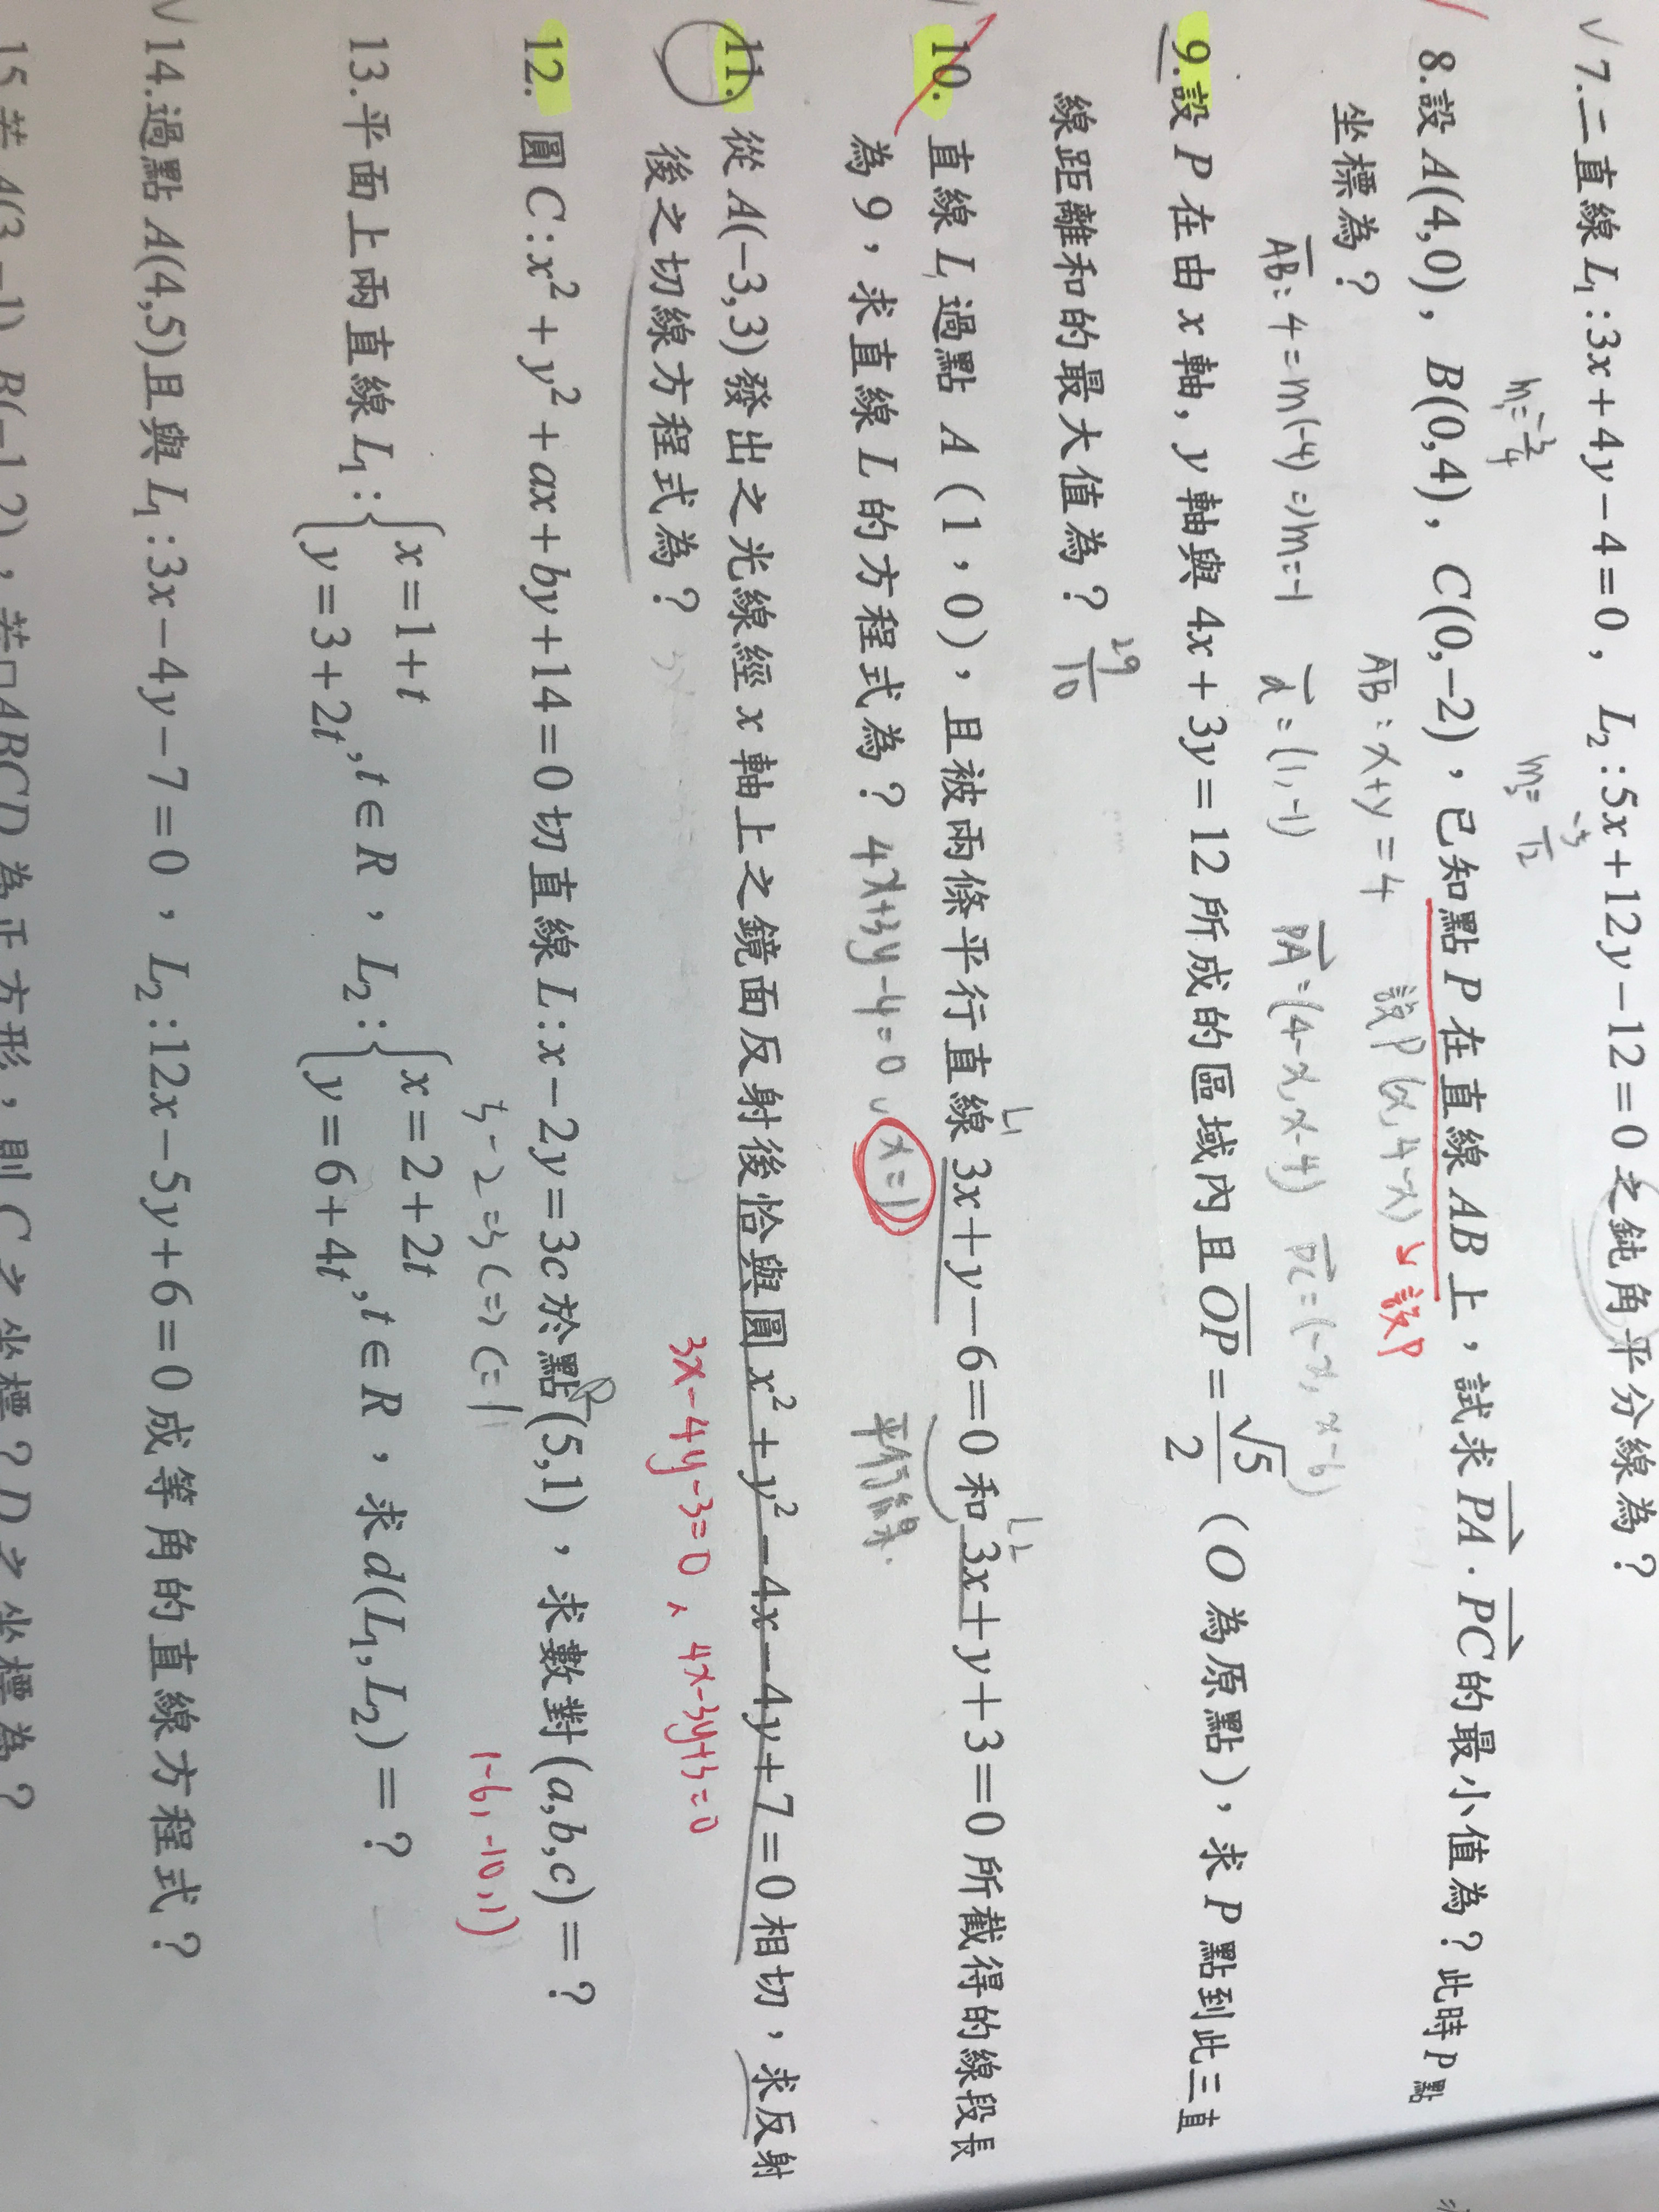 √7.二直線 L₁:3x+4y−4=0，L₂:5x+12y−12=0 之鈍角平分線為？
m₁=-3/4 m₂=-5/12
8.設 A(4,0)，B(0,4)，C(0,−2)，已知點 P 在直線 AB 上，試求 PA·PC 的最小值為？此時 P 點
坐標為？ AB：x+y=4 設P(x,4-x) ↘設P
AB：4=m(-4)⇒m=-1 d=(1,-1) PA=(4-x,x-4) PC=(-x,x-6)
9.設 P 在由 x 軸，y 軸與 4x+3y=12 所成的區域內且 OP=√5/2（O 為原點），求 P 點到此三直
線距離和的最大值為？ 29/10
L₁ L₂
10. 直線 L 過點 A（1，0），且被兩條平行直線 3x+y−6=0 和 3x+y+3=0 所截得的線段長
為 9，求直線 L 的方程式為？ 4x+3y-4=0、x=1 平行線
11. 從 A(−3,3) 發出之光線經 x 軸上之鏡面反射後恰與圓 x²+y²−4x−4y+7=0 相切，求反射
後之切線方程式為？ 3x-4y-3=0、4x-3y+3=0
12. 圓 C:x²+y²+ax+by+14=0 切直線 L:x−2y=3c 於點 (5,1)，求數對 (a,b,c)=？
5-2=3c⇒c=1 (-6,-10,1)
13.平面上兩直線 L₁:{x=1+t y=3+2t ,t∈R，L₂:{x=2+2t y=6+4t ,t∈R，求 d(L₁,L₂)=？
√14.過點 A(4,5) 且與 L₁:3x−4y−7=0，L₂:12x−5y+6=0 成等角的直線方程式？
15.若 A(3,−1)，B(−1,2)，若□ABCD 為正方形，則 C 之坐標？D 之坐標為？